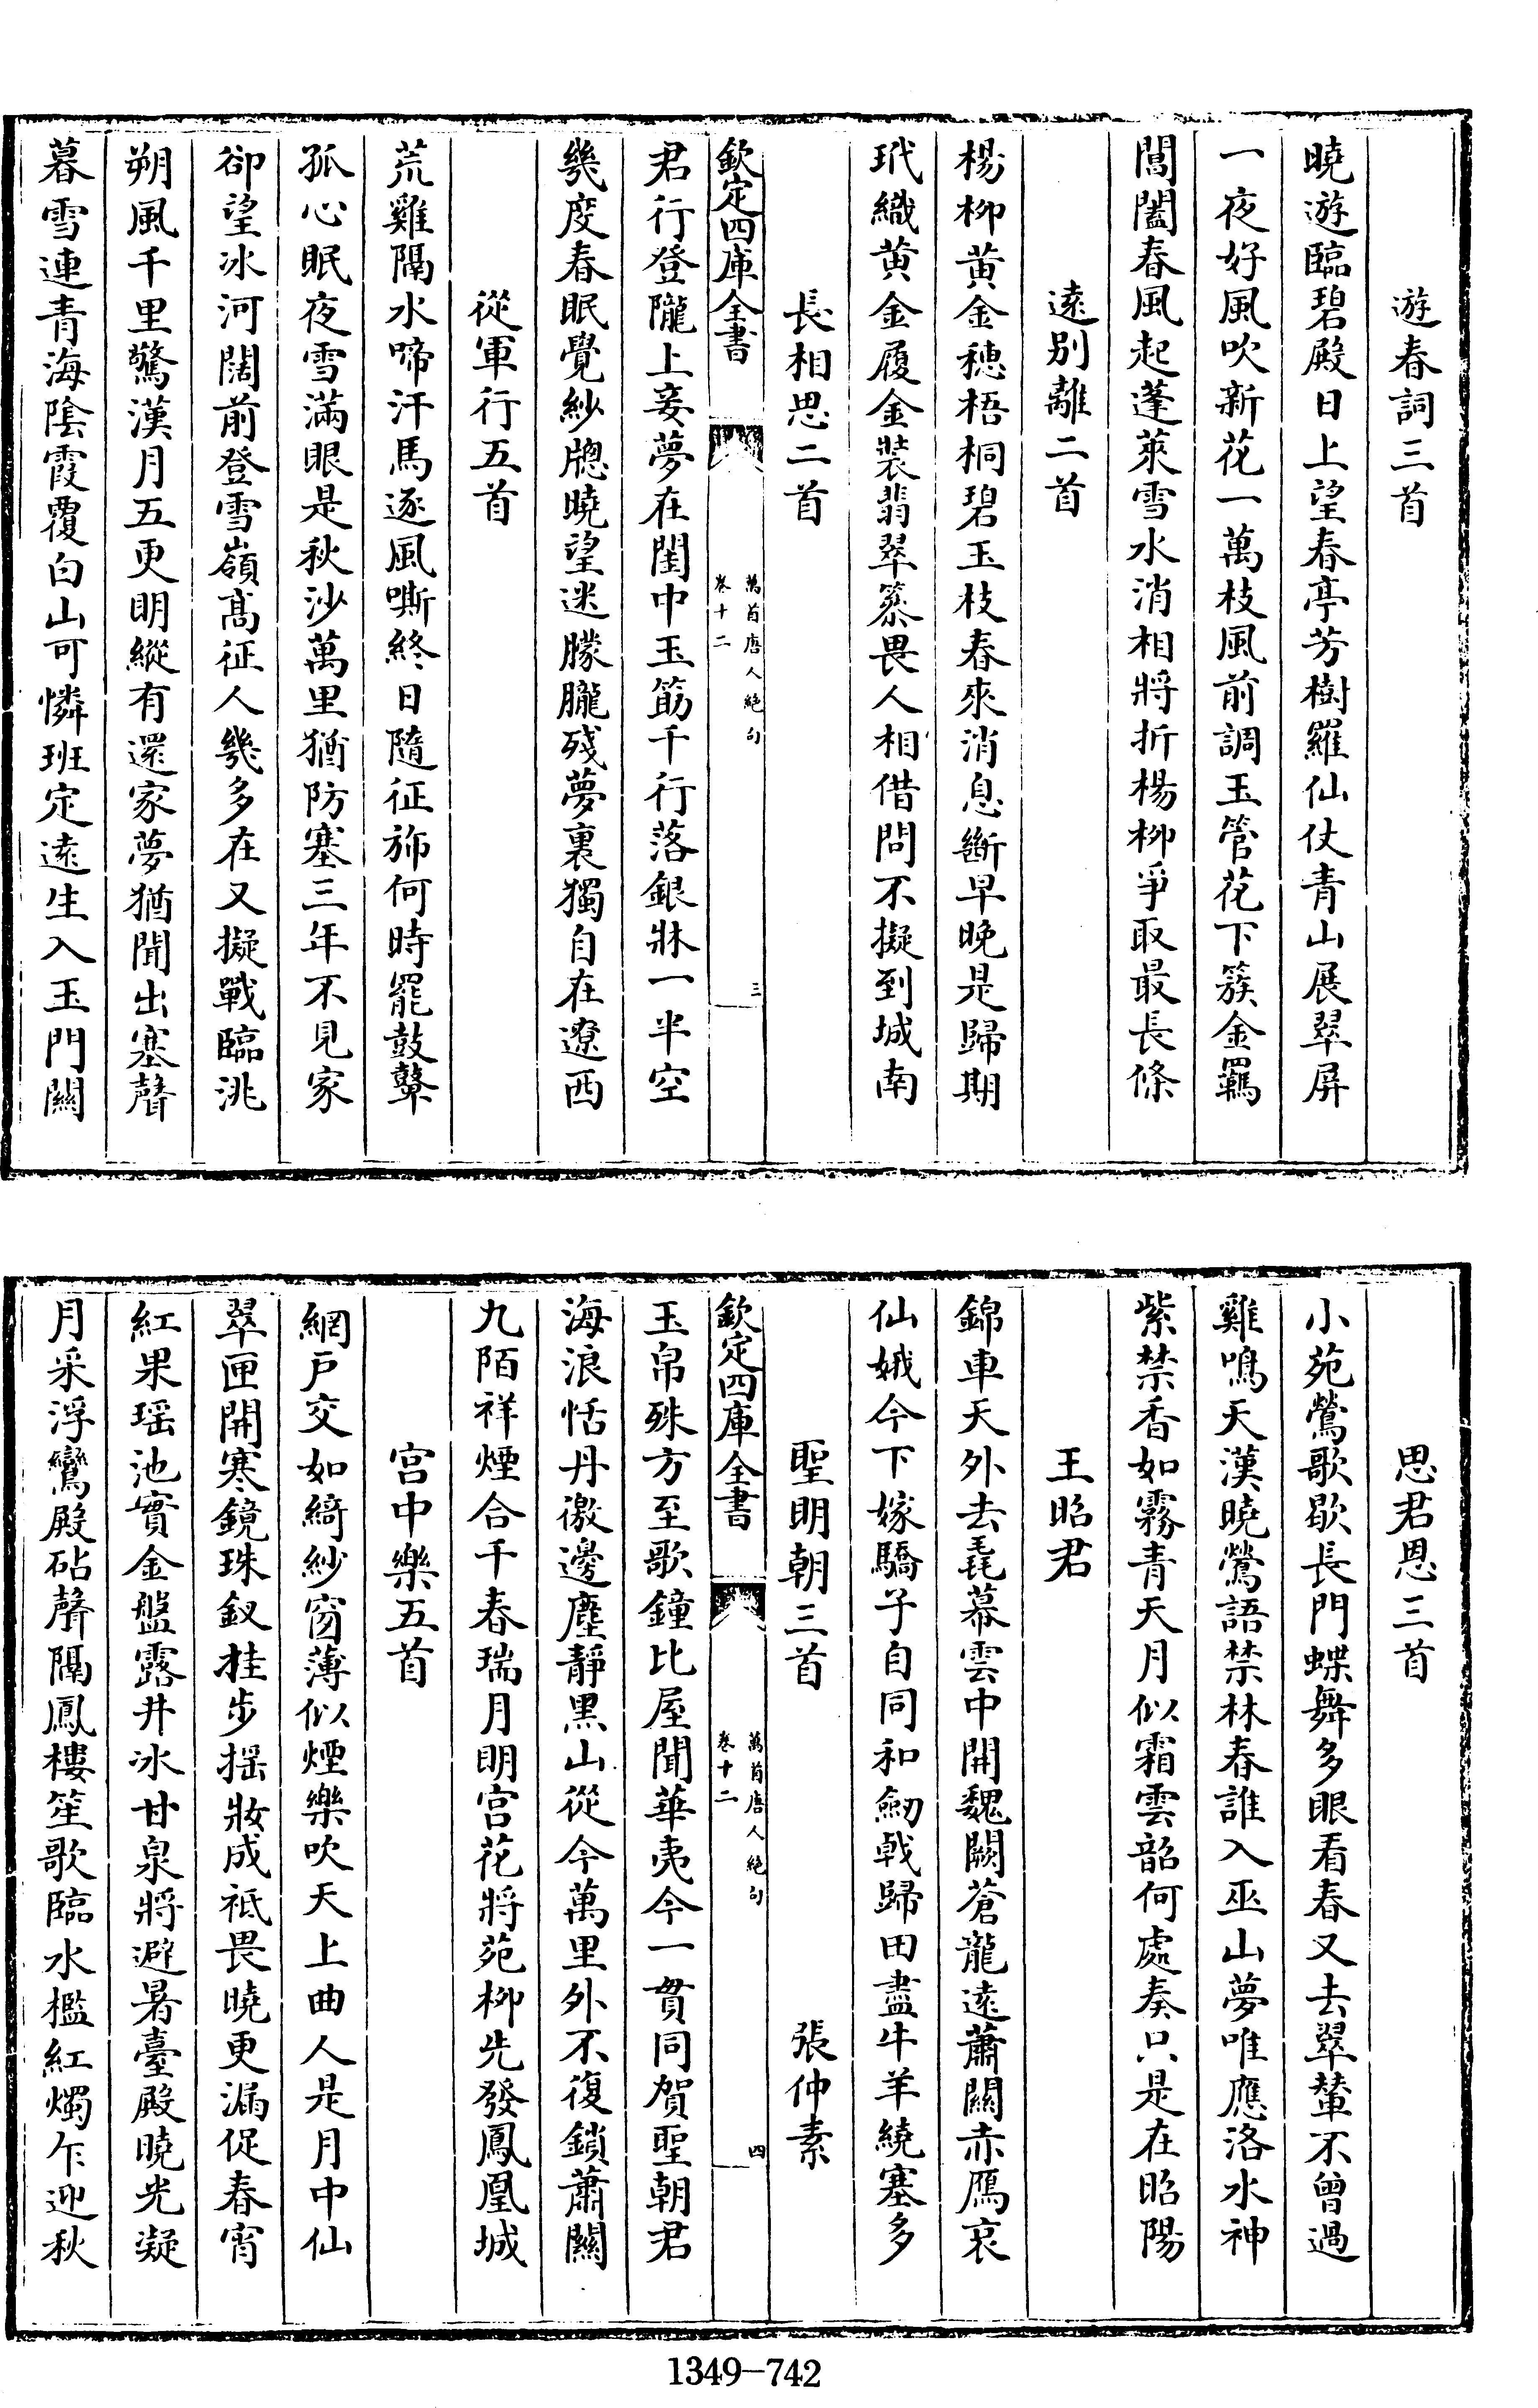 遊春詞三首
曉遊臨碧殿日上望春亭芳樹羅仙仗青山展翠屏
一夜好風吹新花一萬枝風前調玉管花下簇金羈
閶闔春風起蓬萊雪水消相將折楊柳爭取最長條
遠别離二首
楊柳黄金穗梧桐碧玉枝春來消息斷早晚是歸期
玳織黄金履金裝翡翠篸畏人相借問不擬到城南
長相思二首
欽定四庫全書
萬首唐人絶句
卷十二
三
君行登隴上妾夢在閨中玉筯千行落銀牀一半空
幾度春眠覺紗牕曉望迷朦朧殘夢裏獨自在遼西
從軍行五首
荒雞隔水啼汗馬逐風嘶終日隨征斾何時罷鼓鼙
孤心眠夜雪滿眼是秋沙萬里猶防塞三年不見家
卻望冰河闊前登雪嶺髙征人幾多在又擬戰臨洮
朔風千里驚漢月五更明縱有還家夢猶聞出塞聲
暮雪連青海陰霞覆白山可憐班定遠生入玉門關
思君恩三首
小苑鶯歌歇長門蝶舞多眼看春又去翠輦不曾過
雞鳴天漢曉鶯語禁林春誰入巫山夢唯應洛水神
紫禁香如霧青天月似霜雲韶何處奏只是在昭陽
王昭君
錦車天外去毳幕雲中開魏闕蒼龍遠蕭關赤鴈哀
仙娥今下嫁驕子自同和劒戟歸田盡牛羊繞塞多
聖明朝三首　張仲素
欽定四庫全書
萬首唐人絶句
卷十二
四
玉帛殊方至歌鐘比屋聞華夷今一貫同賀聖朝君
海浪恬丹徼邊塵靜黒山從今萬里外不復鎖蕭關
九陌祥煙合千春瑞月明宫花將苑柳先發鳳凰城
宫中樂五首
網戸交如綺紗窗薄似煙樂吹天上曲人是月中仙
翠匣開寒鏡珠釵挂步揺妝成祇畏曉更漏促春宵
紅果瑶池實金盤露井冰甘泉將避暑臺殿曉光凝
月采浮鸞殿砧聲隔鳳樓笙歌臨水檻紅燭乍迎秋
1349-742